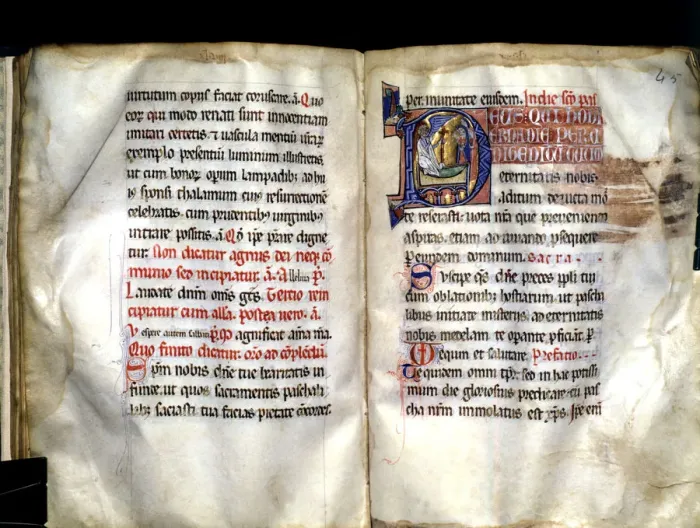 uirtutum copiis faciat coruscare. a. Quo
eor qui modo renati sunt innocentiam
imitari certetis. et uascula mentium urarum
exemplo presentium luminum illustretis
ut cum bonor opium lampadibus ad hu
sponsi thalamum cuius resurrectionē
celebratis. cum prudentibus uirginibus
intrare possitis. a. Qđ ipe prare digne
tur. Non dicatur agnus dei neqz cō
munio sed incipiatur. a. Allelua p̄.
Laudate dn̄m om̄s gēs. Tertio rein
cipiatur cum alla. postea uero. a.
Vespere autem sabbi p̄. Magnificat añia ma.
Quo finito dicatur. oro ad cōplendū.
Spm nobis dn̄e tue karitatis in
funde. ut quos sacramentis paschali
bz saciasti. tua facias pietate concordes.
45
per. in unitate eiusdem. In die sc̄o pas
DEUS. QUI HODI
ERNA DIE PER U
NIGENITU TUUM
eternitatis nobis
aditum deuicta mor
te reserasti. uota nr̄a que preueniendo
aspiras. etiam adiuuando psequere.
p eundem dominum. Sacra.
Suscipe qs dn̄e preces ppli tui
cum oblationibz hostiarum. ut pascha
libus initiate misteriis. ad eternitatis
nobis medelam te opante pficiant. p̄
Equum et salutare. Prefatio.
Te quidem omni tpr. sed in hac potissi
mum die gloriosius predicare. cū pas
cha nr̄m immolatus est xp̄s. Ipe eni